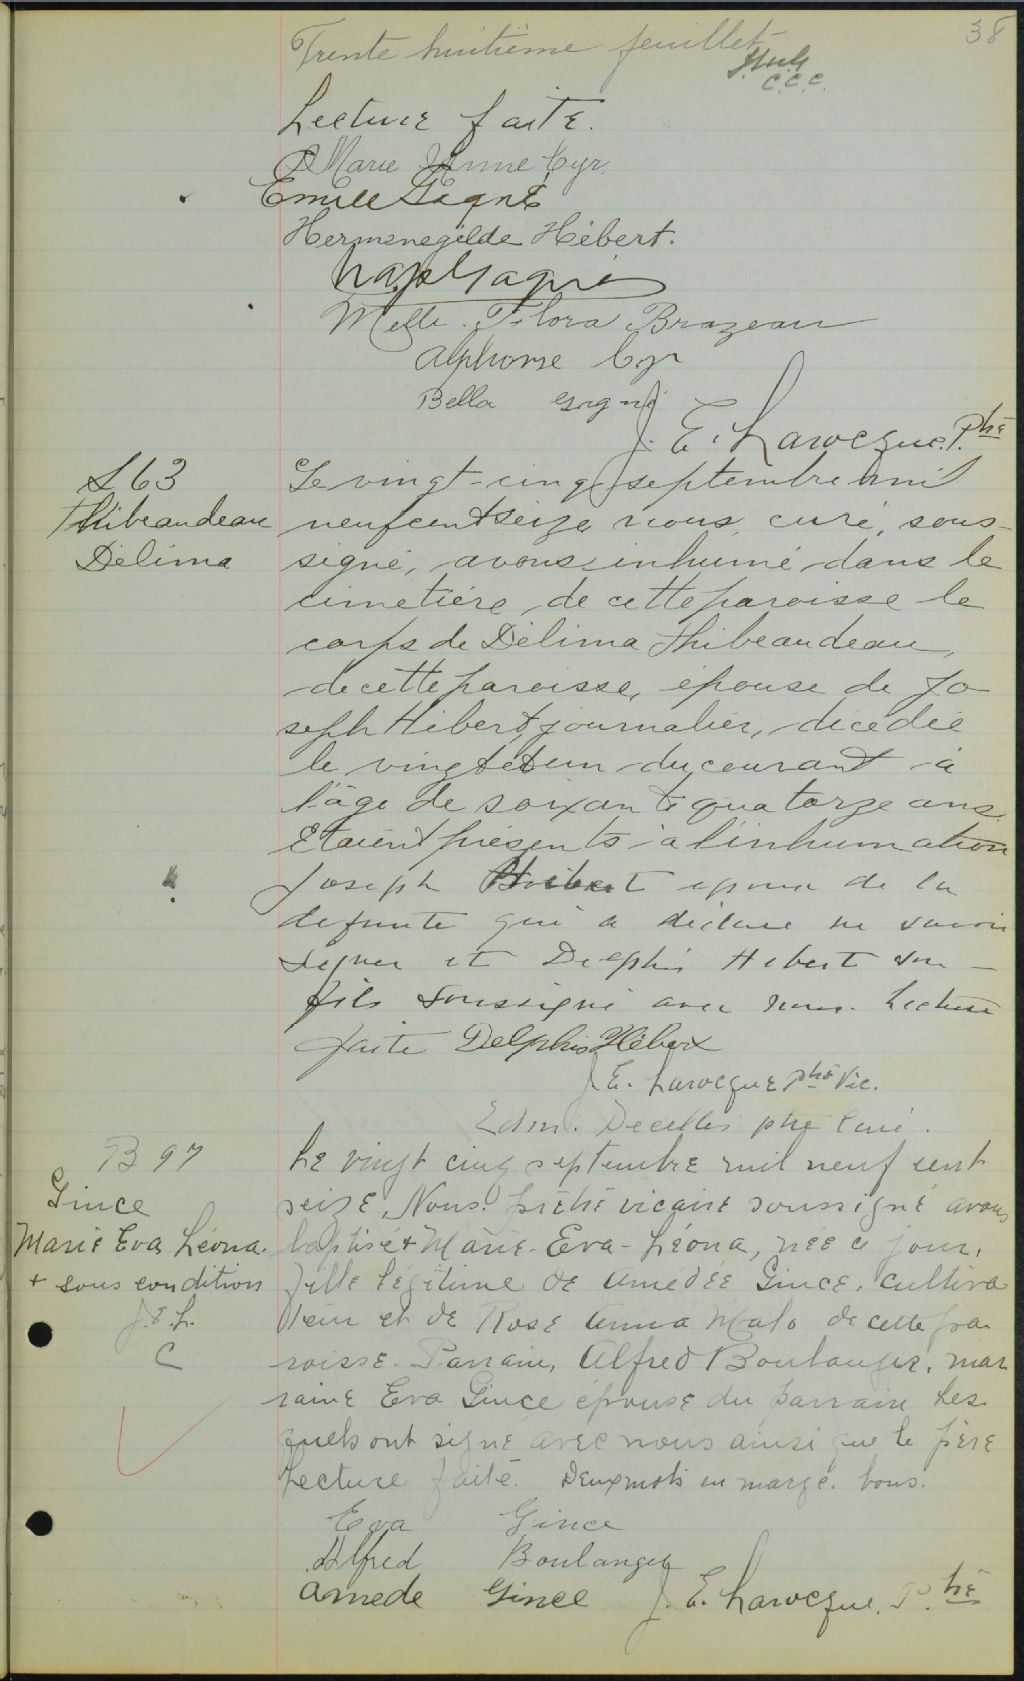 38
Trente huitième feuillet
C.C.C.
Lecture faite.
Marie Anne Cyr.
Emile Gagné
Hermenegilde Hébert.
Nap Gagné
Melle. Flora Brazeau
Alphonse Cyr
Bella Gagné
J. E. Larocque. Ptre
S 63
Thibeaudeau
Délima
Le vingt-cinq septembre mil
neuf cent seize, nous, curé, sous-
signé, avons inhumé dans le
cimetière de cette paroisse le
corps de Délima Thibeaudeau,
de cette paroisse, épouse de Jo-
seph Hébert, journalier, décédée
le vingt et un du courant à
l'âge de soixante quatorze ans.
Etaient présents à l'inhumation
Joseph Hébert epoux de la
defunte qui a déclaré ne savoir
signer et Delphis Hebert son
fils soussigné avec nous. Lecture
faite Delphis Hébert
J. E. Larocque Ptre Vic.
Edm. Decelles ptre Curé.
B 97
Gince
Marie Eva Léona.
+ sous condition
J.E.L.
C
Le vingt cinq septembre mil neuf cent
seize, Nous prêtre vicaire soussigné avons
baptisé + Marie-Eva-Léona, née ce jour,
fille légitime de Amédée Gince, cultiva
teur et de Rose Anna Malo de cette pa-
roisse. Parrain, Alfred Boulanger, mar
raine Eva Gince épouse du parrain Les-
quels ont signé avec nous ainsi que le père
Lecture faite. Deux mots en marge. bons.
Eva Gince
Alfred Boulanger
Amede Gince J. E. Larocque, Ptre